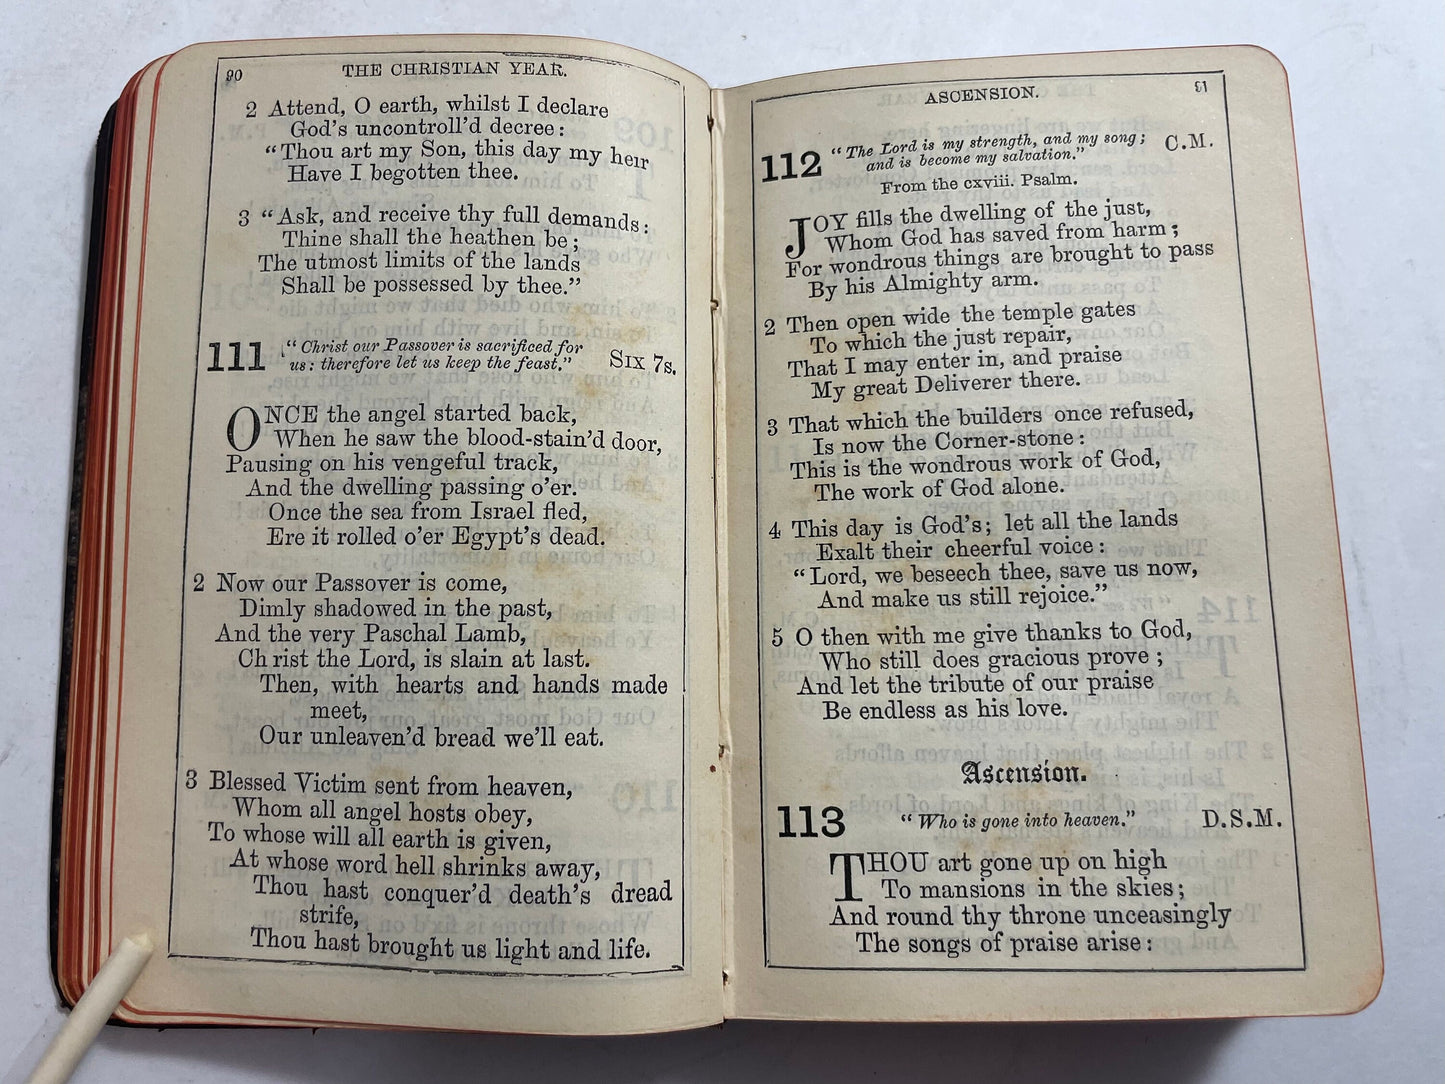 90
THE CHRISTIAN YEAR.
2 Attend, O earth, whilst I declare
God's uncontroll'd decree:
"Thou art my Son, this day my heir
Have I begotten thee.
3 "Ask, and receive thy full demands:
Thine shall the heathen be;
The utmost limits of the lands
Shall be possessed by thee."
111 "Christ our Passover is sacrificed for
us: therefore let us keep the feast." SIX 7s.
ONCE the angel started back,
When he saw the blood-stain'd door,
Pausing on his vengeful track,
And the dwelling passing o'er.
Once the sea from Israel fled,
Ere it rolled o'er Egypt's dead.
2 Now our Passover is come,
Dimly shadowed in the past,
And the very Paschal Lamb,
Christ the Lord, is slain at last.
Then, with hearts and hands made
meet,
Our unleaven'd bread we'll eat.
3 Blessed Victim sent from heaven,
Whom all angel hosts obey,
To whose will all earth is given,
At whose word hell shrinks away,
Thou hast conquer'd death's dread
strife,
Thou hast brought us light and life.
ASCENSION.
91
112 "The Lord is my strength, and my song;
and is become my salvation." C.M.
From the cxviii. Psalm.
JOY fills the dwelling of the just,
Whom God has saved from harm;
For wondrous things are brought to pass
By his Almighty arm.
2 Then open wide the temple gates
To which the just repair,
That I may enter in, and praise
My great Deliverer there.
3 That which the builders once refused,
Is now the Corner-stone:
This is the wondrous work of God,
The work of God alone.
4 This day is God's; let all the lands
Exalt their cheerful voice:
"Lord, we beseech thee, save us now,
And make us still rejoice."
5 O then with me give thanks to God,
Who still does gracious prove;
And let the tribute of our praise
Be endless as his love.
Ascension.
113 "Who is gone into heaven." D.S.M.
THOU art gone up on high
To mansions in the skies;
And round thy throne unceasingly
The songs of praise arise: